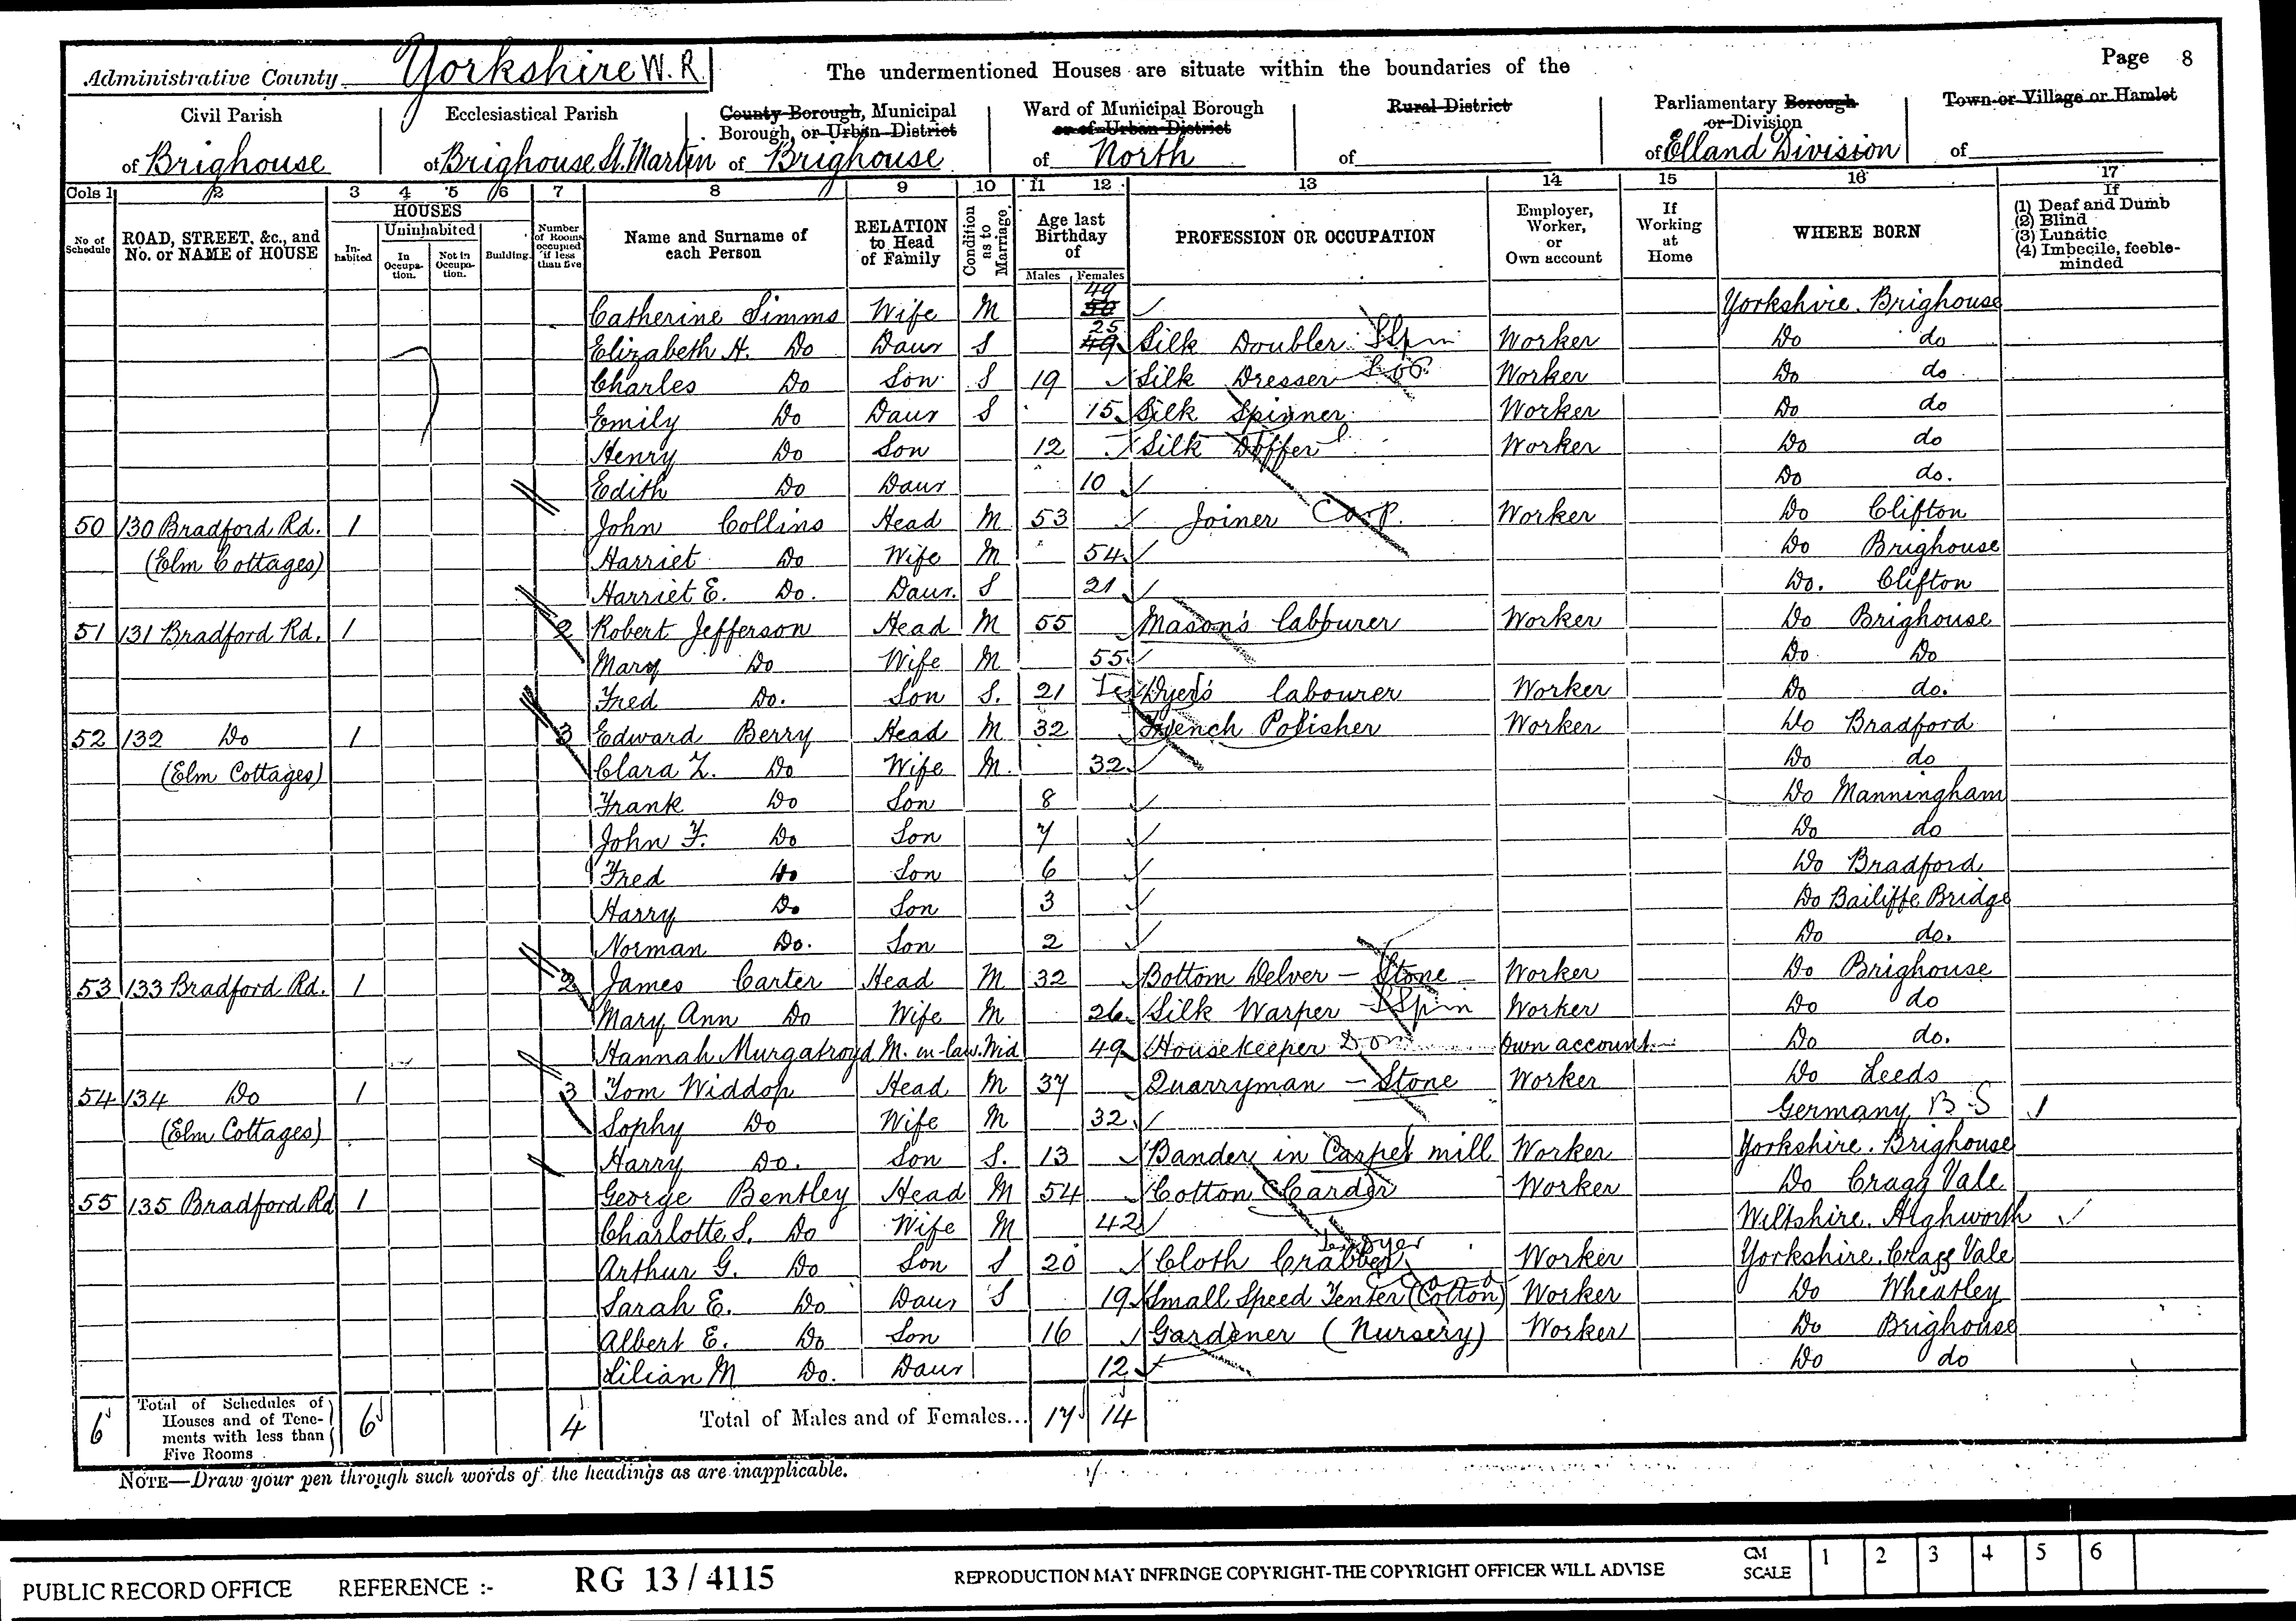 Page 8
Administrative County Yorkshire W. R.
The undermentioned Houses are situate within the boundaries of the
Civil Parish of Brighouse
Ecclesiastical Parish of Brighouse St. Martin
County Borough, Municipal Borough, or Urban District of Brighouse
Ward of Municipal Borough or of Urban District of North
Rural District of
Parliamentary Borough or Division of Elland Division
Town or Village or Hamlet of
Cols 1 2 3 4 5 6 7 8 9 10 11 12 13 14 15 16 17
No. of Schedule
ROAD, STREET, &c., and No. or NAME of HOUSE
HOUSES
Inhabited
Uninhabited
In Occupation.
Not in Occupation.
Building.
Number of Rooms occupied if less than five
Name and Surname of each Person
RELATION to Head of Family
Condition as to Marriage
Age last Birthday of
Males Females
PROFESSION OR OCCUPATION
Employer, Worker, or Own account
If Working at Home
WHERE BORN
If
(1) Deaf and Dumb
(2) Blind
(3) Lunatic
(4) Imbecile, feeble-minded
Catherine Simms Wife M 50 49 Yorkshire. Brighouse
Elizabeth A. Do Daur S 49 25 Silk Doubler SSpin Worker Do do
Charles Do Son S 19 Silk Dresser Worker Do do
Emily Do Daur S 15 Silk Spinner Worker Do do
Henry Do Son 12 Silk Doffer Worker Do do
Edith Do Daur 10 Do do.
50 130 Bradford Rd. 1 John Collins Head M 53 Joiner Carp. Worker Do Clifton
(Elm Cottages) Harriet Do Wife M 54 Do Brighouse
Harriet E. Do. Daur. S 21 Do. Clifton
51 131 Bradford Rd. 1 2 Robert Jefferson Head M 55 Mason's labourer Worker Do Brighouse
Mary Do Wife M 55 Do Do
Fred Do. Son S. 21 Dyer's labourer Worker Do do.
52 132 Do 1 3 Edward Berry Head M 32 French Polisher Worker Do Bradford
(Elm Cottages) Clara Z. Do Wife M. 32 Do do
Frank Do Son 8 Do Manningham
John F. Do Son 7 Do do
Fred Do Son 6 Do Bradford
Harry Do Son 3 Do Bailiffe Bridge
Norman Do. Son 2 Do do.
53 133 Bradford Rd. 1 2 James Carter Head M 32 Bottom Delver - Stone Worker Do Brighouse
Mary Ann Do Wife M 26 Silk Warper SSpin Worker Do do
Hannah Murgatroyd M.-in-law. Wid 49 Housekeeper Dom Own account Do do.
54 134 Do 1 3 Tom Widdop Head M 37 Quarryman - Stone Worker Do Leeds
(Elm Cottages) Sophy Do Wife M 32 Germany B.S 1
Harry Do. Son S. 13 Bander in Carpet mill Worker Yorkshire. Brighouse
55 135 Bradford Rd 1 George Bentley Head M 54 Cotton Carder Worker Do Cragg Vale
Charlotte S. Do Wife M 42 Wiltshire. Highworth
Arthur G. Do Son S 20 Cloth Crabber Worker Yorkshire. Cragg Vale
Sarah E. Do Daur S 19 Small Speed Tenter (Cotton) Worker Do Wheatley
Albert E. Do Son 16 Gardener (Nursery) Worker Do Brighouse
Lilian M Do. Daur 12 Do do
6 Total of Schedules of Houses and of Tenements with less than Five Rooms 6 4 Total of Males and of Females... 17 14
NOTE—Draw your pen through such words of the headings as are inapplicable.
PUBLIC RECORD OFFICE REFERENCE :- RG 13 / 4115 REPRODUCTION MAY INFRINGE COPYRIGHT-THE COPYRIGHT OFFICER WILL ADVISE CM SCALE 1 2 3 4 5 6